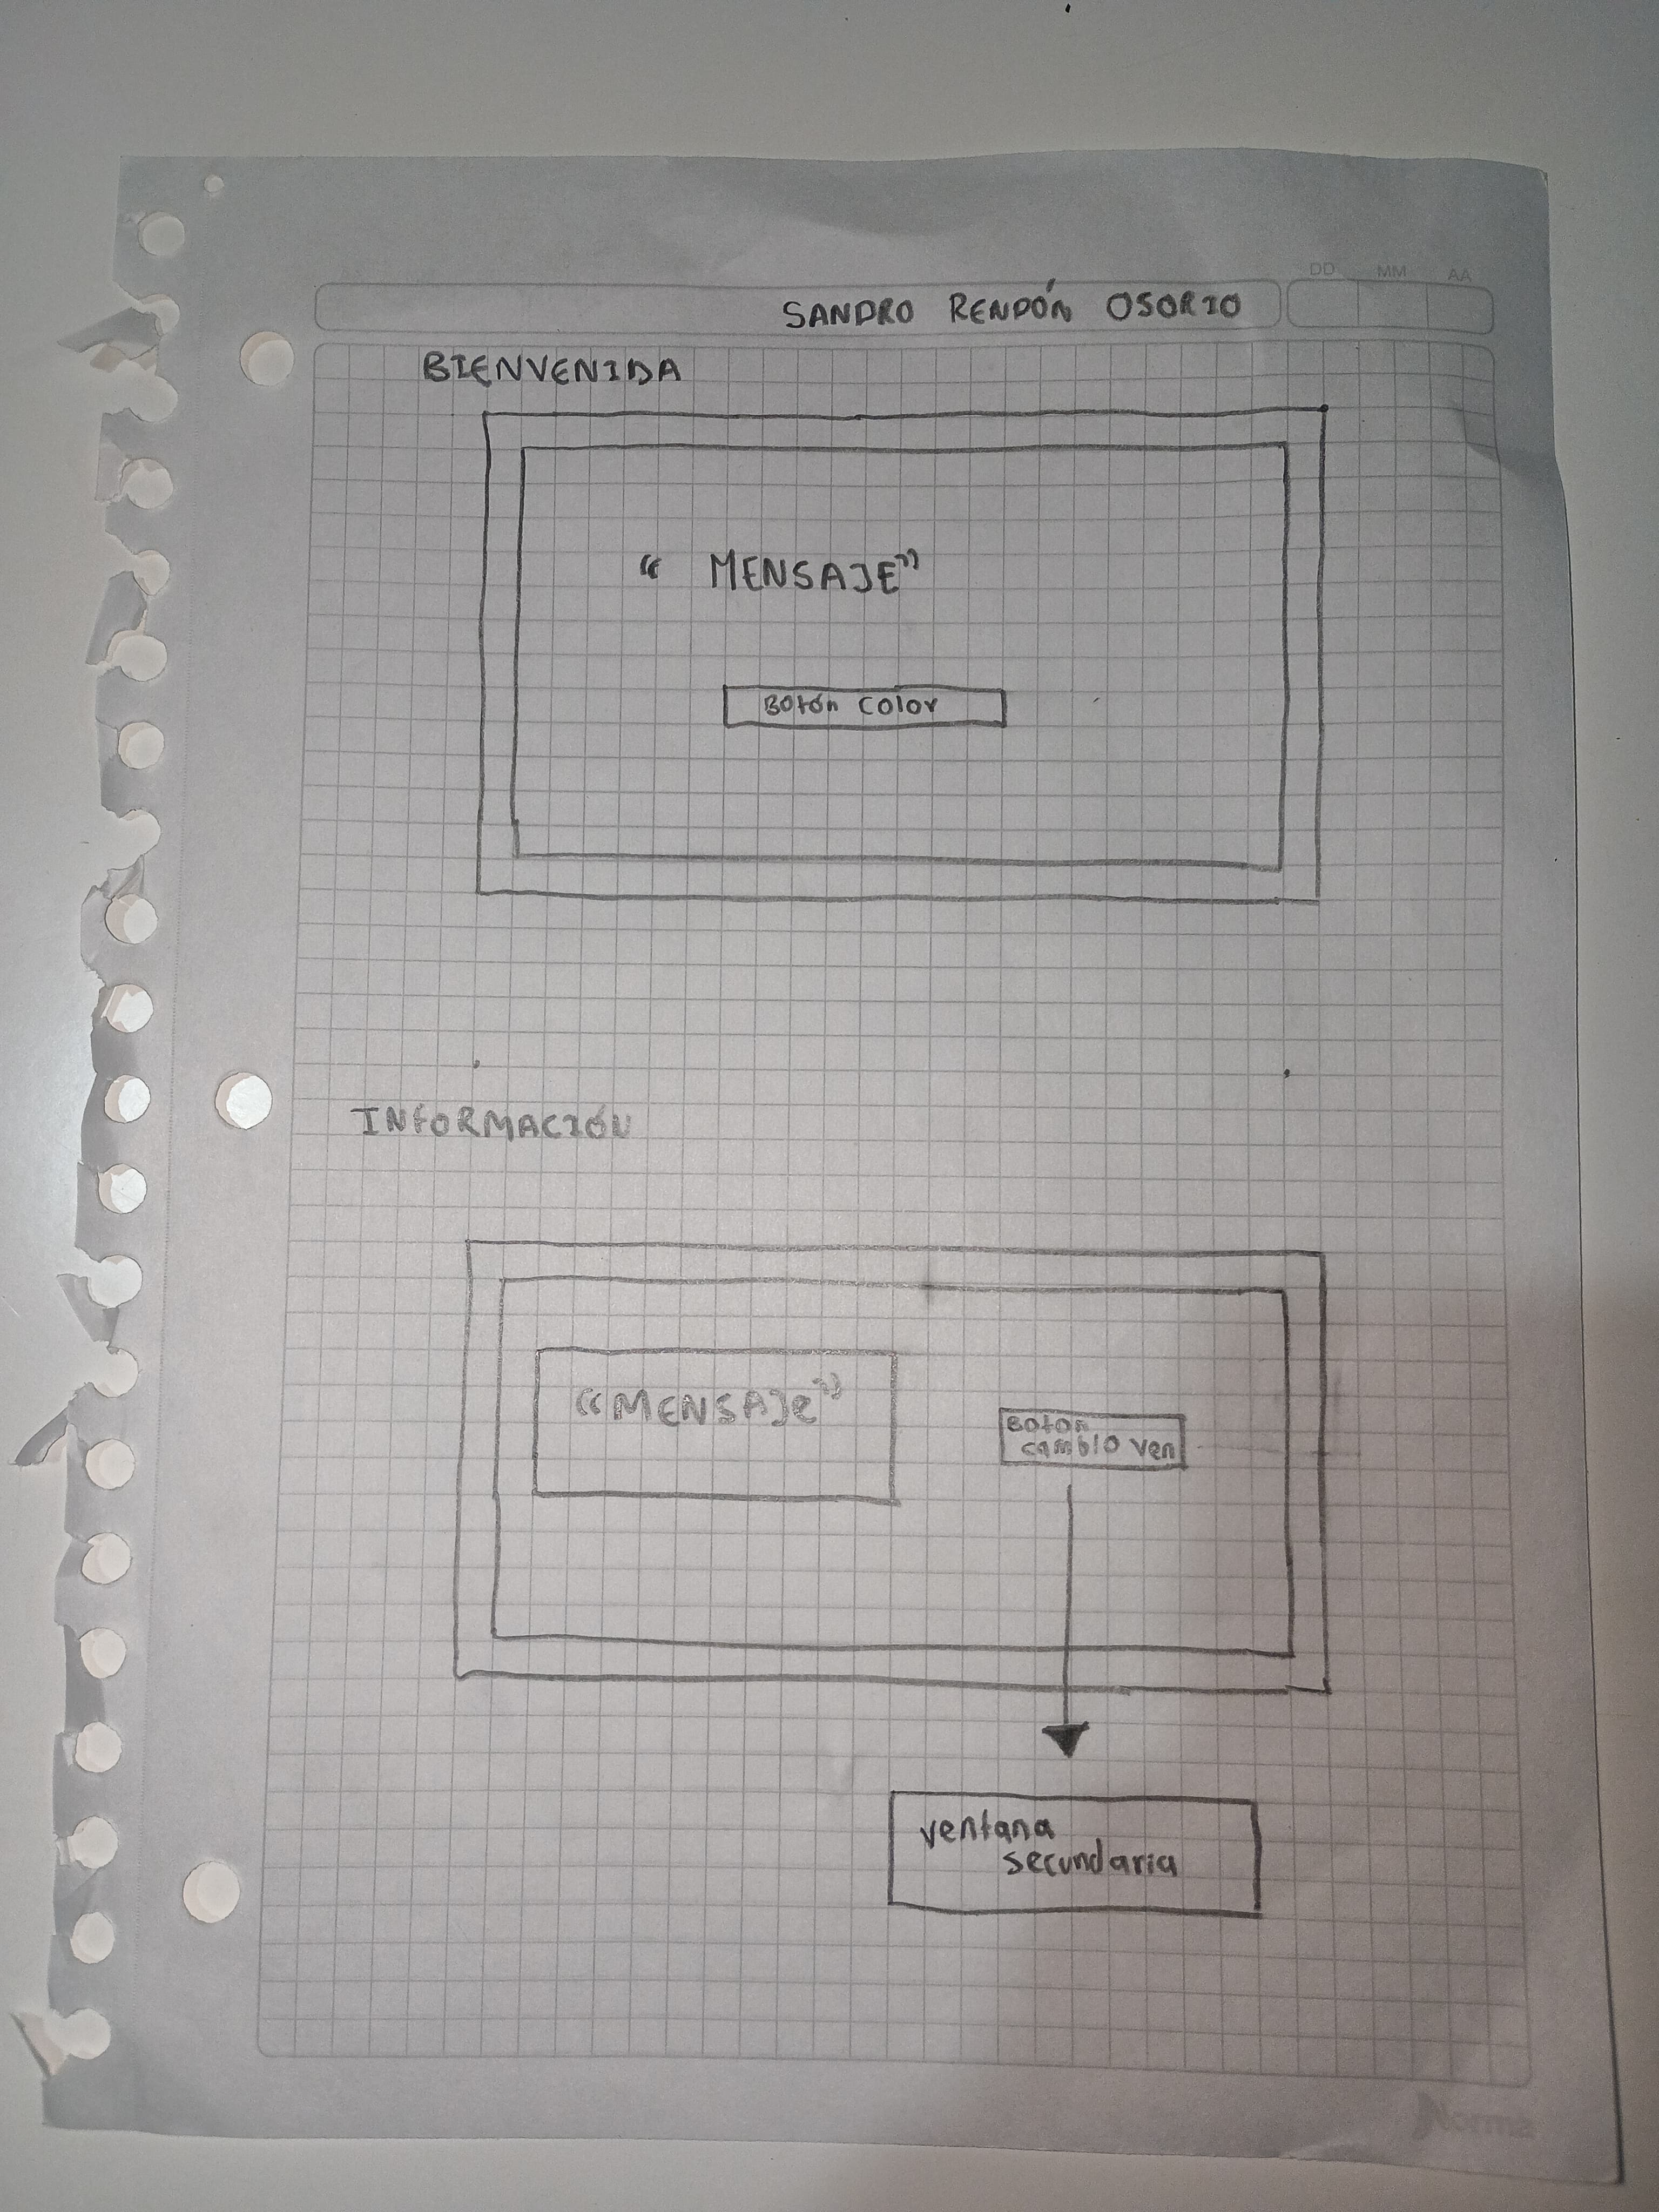 DD MM AA
SANDRO RENDÓN OSORIO
BIENVENIDA
“ MENSAJE”
Botón color
INFORMACIÓN
“MENSAJe”
Boton
cambio ven
ventana
secundaria
Norma